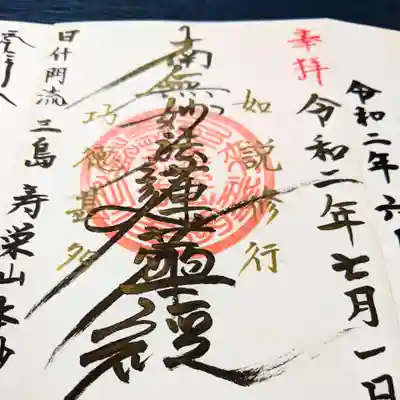 令和二年六
奉拝
令和二年七月一日
如説修行
南無妙法蓮華経
功徳甚多
日什門流 三島 寿栄山本妙